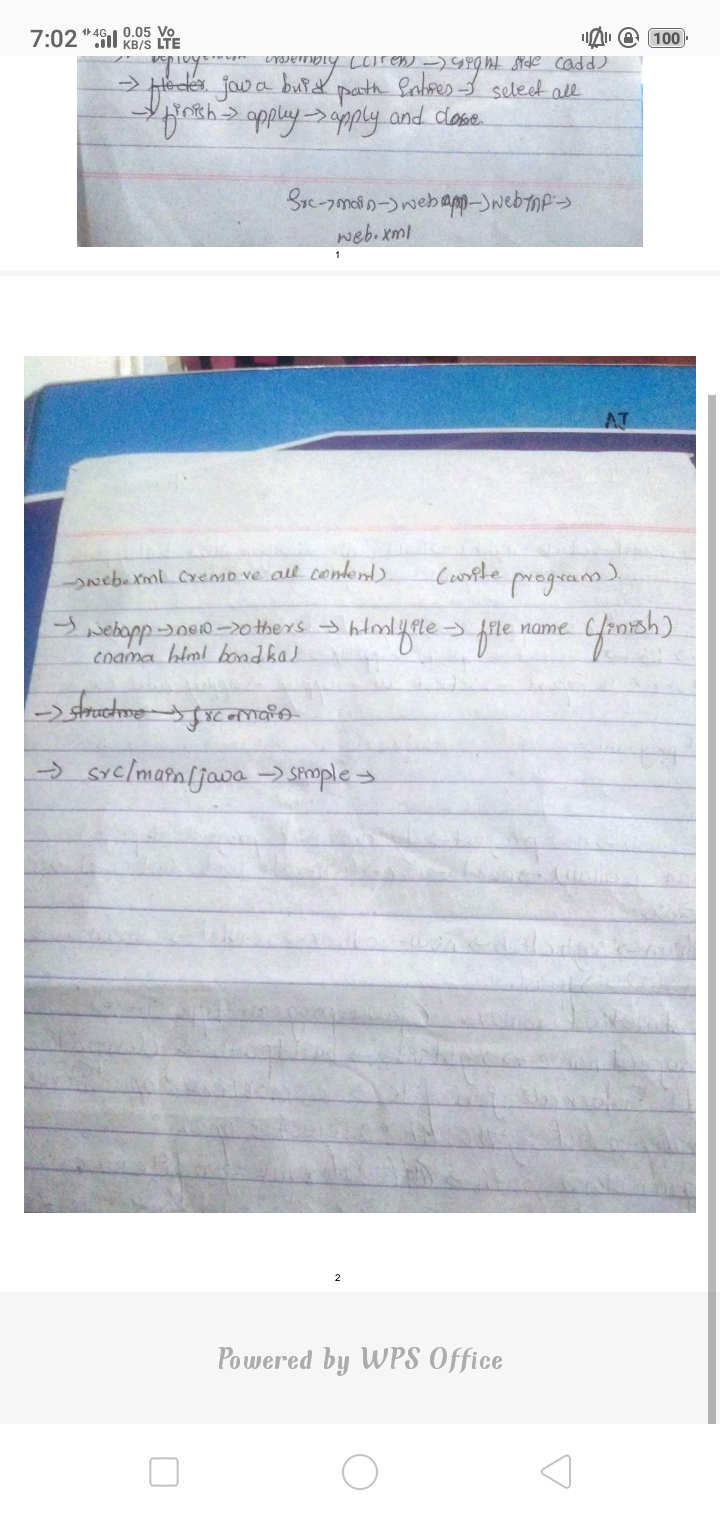 7:02 4G 0.05 KB/S Vo LTE 100
Deployment Assembly (click) → right side (add)
→ java buid path Entries → select all
→ finish → apply → apply and close.
Src → main → webapp → webINF →
web.xml
1
AJ
→ web.xml (remove all content) (write program).
→ webapp → new → others → html file → file name (finish)
html
→ structure → src main
→ src/main/java → simple →
2
Powered by WPS Office